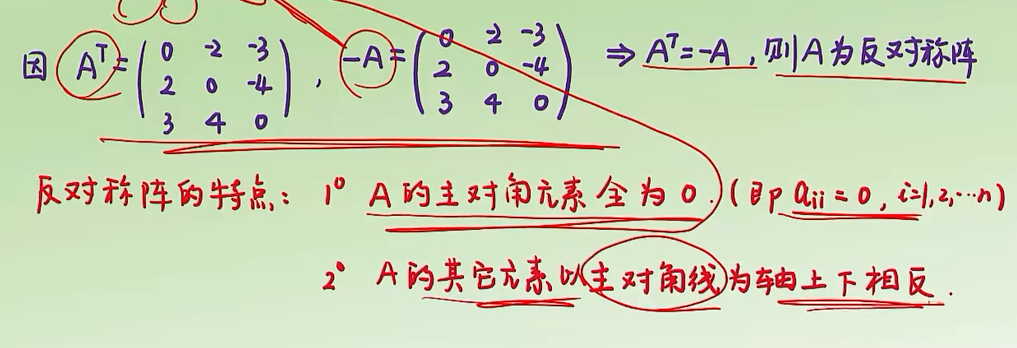 因 Aᵀ = ( 0 -2 -3 ; 2 0 -4 ; 3 4 0 ) , -A = ( 0 -2 -3 ; 2 0 -4 ; 3 4 0 ) ⇒ Aᵀ = -A , 则 A 为反对称阵
反对称阵的特点: 1° A 的主对角元素全为 0. (即 aᵢᵢ = 0, i=1,2,⋯n)
2° A 的其它元素以主对角线为轴上下相反.